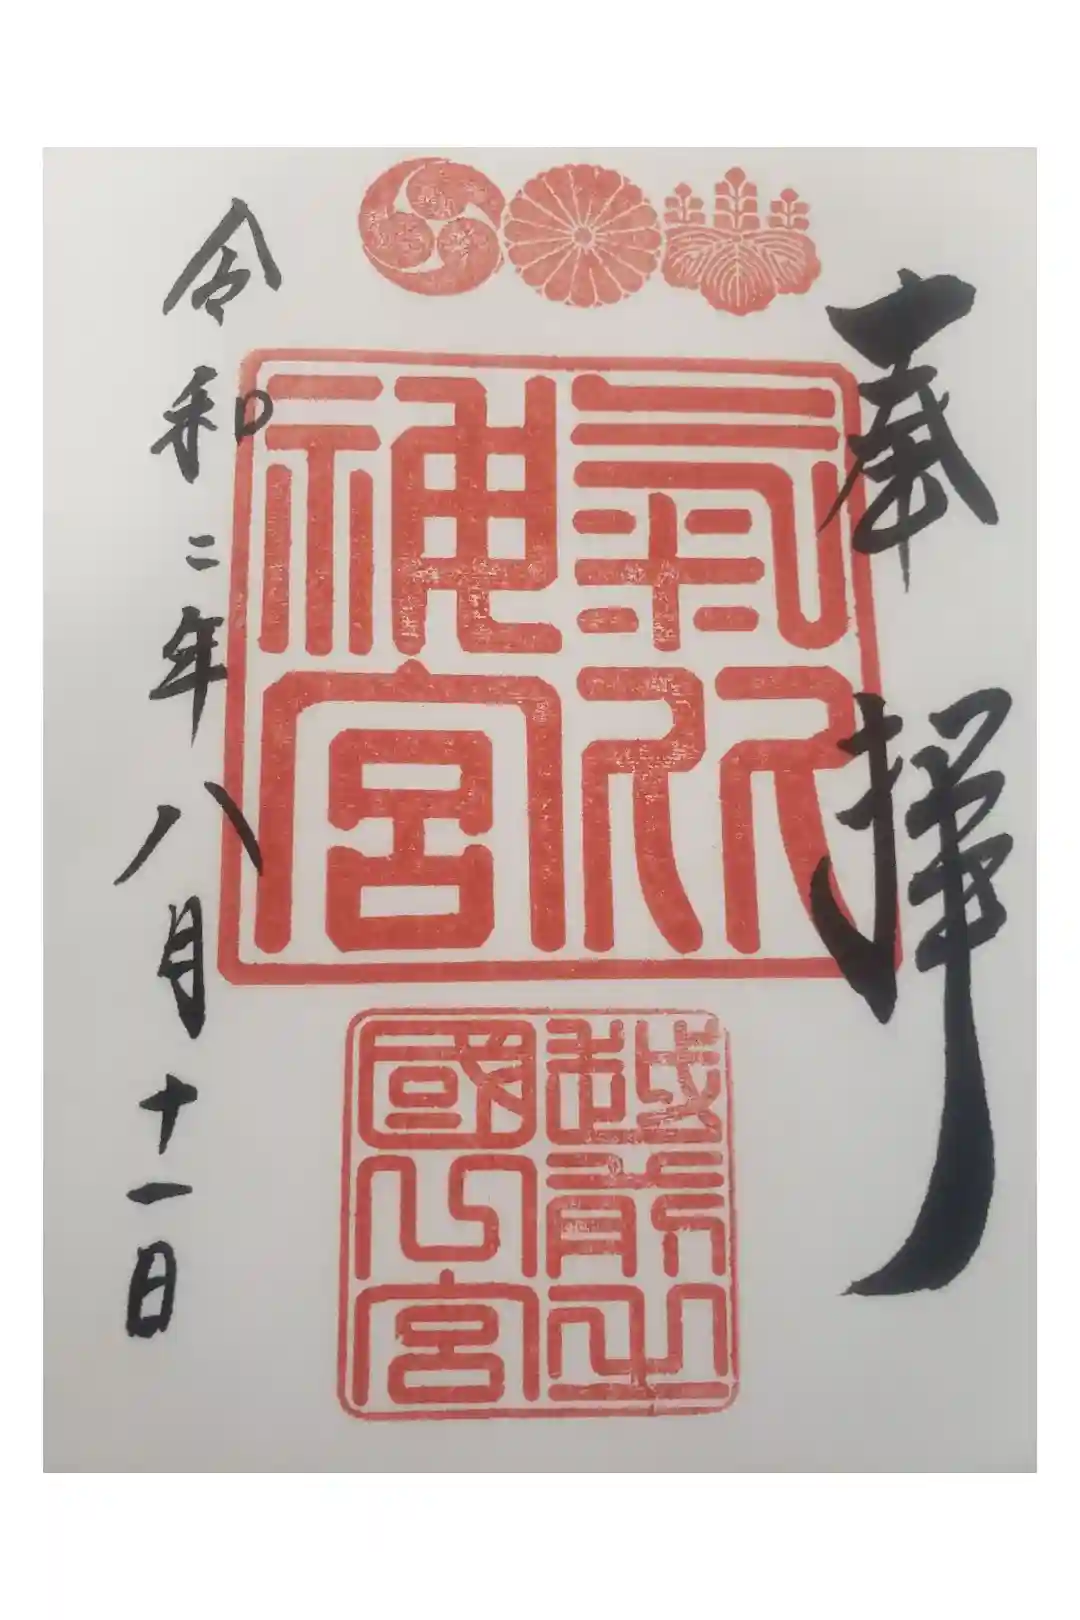 奉拝
氣比
神宮
越前之
國一宮
令和二年八月十一日